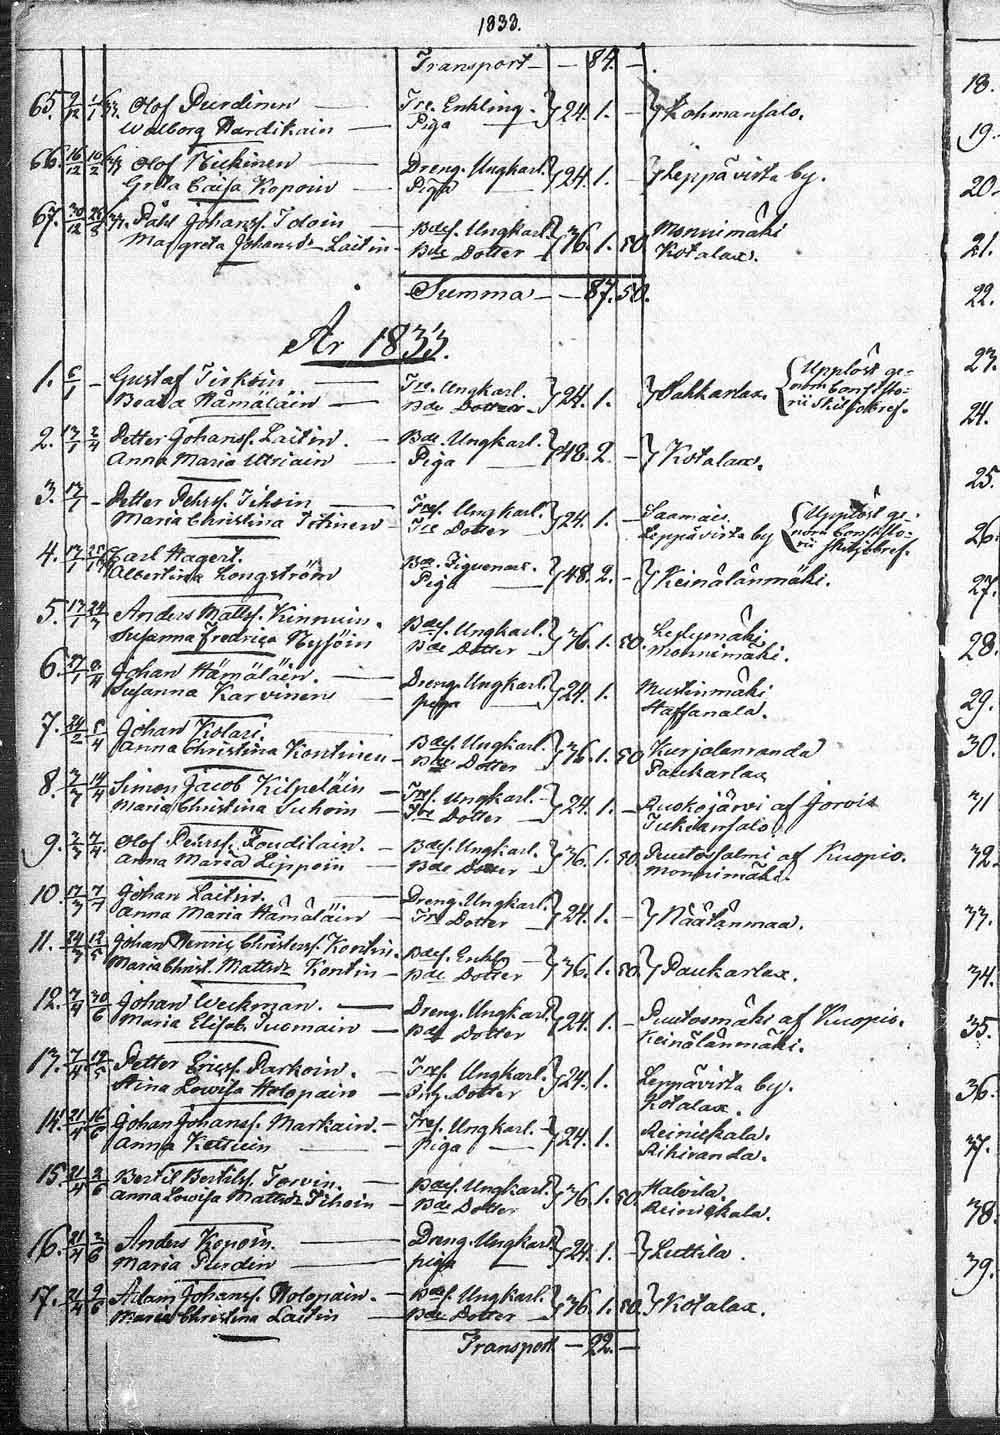 1833.
Transport — — 84. —
65. 9/12 1/1 33. Olof Purdinen — Tre. Enkling. } 24. 1. — } Kohmansalo.
Walborg Hardikain — Piga
66. 16/12 10/2 33 Olof Mickinen — Dreng. Ungkarl. } 24. 1. — } Leppävirta by.
Greta Caisa Kopoin — Piga
67. 30/12 33. Påhl Johansf. Idoin — Bdes. Ungkarl. } 36. 1. 50. Monnimäki
Margreta Johansdr Laitin — Bde Dotter Kotalax.
Summa — — 87. 50.
År 1833.
1. 6/1 — Gustaf Tirkoin — Tre. Ungkarl. } 24. 1. } Sahkarlax. { Upplöst ge-
Beata Hämäläin — Bde Dotter nom Consisto-
rii Skiljobref.
2. 13/1 2/4 Petter Johansf. Laitin. — Bde. Ungkarl. } 48. 2. — } Kotalax.
Anna Maria Utriain — Piga
3. 17/1 — Petter Pehrsf. Tihoin — Tres. Ungkarl. } 24. 1. — Saamais. { Upplöst ge-
Maria Christina Tihinen Tre Dotter Leppävirta by nom Consisto-
rii Skiljobref.
4. 17/1 Carl Hagert. Bde. } 48. 2. — } Keinälänmäki.
Albertina Longström Piga
5. 17/1 24/3 Anders Mattsf. Kinnuin. Bdes. Ungkarl. } 36. 1. 50.
Susanna Fredrica Nysöin Bde Dotter Monnimäki.
6. 17/1 8/4 Johan Hämäläin. — Dreng. Ungkarl. } 24. 1. Mustinmäki
Susanna Karvinen — piga Staffanala.
7. 24/2 8/4 Johan Kolari. Bdes. Ungkarl. } 36. 1. 50 Kurjalanranda
Anna Christina Kontinen — Bde Dotter Paukarlax
8. 3/3 14/4 Simon Jacob Kilpeläin — Tres. Ungkarl. } 24. 1. — Ruokojärvi af Jorois
Maria Christina Suhoin — Tre Dotter Tukiansalo
9. 3/3 7/4. Olof Pehrsf. Koudilain. — Bdes. Ungkarl. } 36. 1. 50. Puutossalmi af Kuopio.
Anna Maria Lippoin — Bde Dotter Monnimäki.
10. 17/3 7/4 Johan Laitin. — Dreng. Ungkarl. } 24. 1. — } Näätänmaa.
Anna Maria Hämäläin — Tre Dotter
11. 24/3 12/5 Johan Henric Christersf. Kontin. Bdes. Enkl. } 36. 1. 50. } Paukarlax.
Maria Christ. Mattsdr Kontin — Bde Dotter
12. 7/4 30/6 Johan Weckman. — Dreng. Ungkarl. } 24. 1. — Puutosmäki af Kuopio.
Maria Elisab. Tuomain — Bde Dotter Keinälänmäki.
13. 7/4 12/5 Petter Ericsf. Parkoin. — Tres. Ungkarl. } 24. 1. Leppävirta by.
Stina Lowisa Holopain — Dotter Kotalax.
14. 21/4 16/6 Johan Johansf. Markain. — Tres. Ungkarl. } 24. 1. Reinickala.
Anna Kettuin — piga Rihiranda.
15. 21/4 2/6 Bertil Bertilsf. Torvin. — Bdes. Ungkarl. } 36. 1. 50. Halvila.
Anna Lowisa Mattsdr Tihoin — Bde Dotter Reinickala.
16. 21/4 2/6 Anders Kopoin. — Dreng. Ungkarl } 24. 1. — } Luttila.
Maria Purdin — piga
17. 21/4 9/6 Adam Johansf. Holopain. — Bdes. Ungkarl. } 36. 1. 50. } Kotalax.
Maria Christina Laitin — Bde Dotter
Transport — 22. —
18.
19.
20.
21.
22.
23.
24.
25.
26.
27.
28.
29.
30.
31
32.
33.
34.
35.
36.
37.
38.
39.